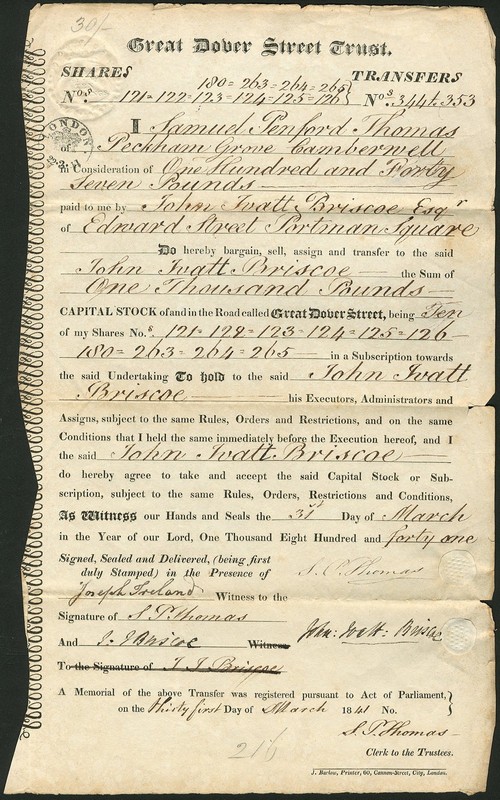 30/-
Great Dover Street Trust.
SHARES
TRANSFERS
180=263=264=265
Nos. 121=122=123=124=125=126} Nos. 344 to 353
LONDON
I Samuel Penford Thomas
of Peckham Grove Camberwell
in Consideration of One Hundred and Forty
Seven Pounds
paid to me by John Ivatt Briscoe Esqr
of Edward Street Portman Square
Do hereby bargain, sell, assign and transfer to the said
John Ivatt Briscoe the Sum of
One Thousand Pounds
CAPITAL STOCK of and in the Road called Great Dover Street, being Ten
of my Shares No.s 121=122=123=124=125=126
180=263=264=265 in a Subscription towards
the said Undertaking To hold to the said John Ivatt
Briscoe his Executors, Administrators and
Assigns, subject to the same Rules, Orders and Restrictions, and on the same
Conditions that I held the same immediately before the Execution hereof, and I
the said John Ivatt Briscoe
do hereby agree to take and accept the said Capital Stock or Sub-
scription, subject to the same Rules, Orders, Restrictions and Conditions,
As Witness our Hands and Seals the 31st Day of March
in the Year of our Lord, One Thousand Eight Hundred and forty one
Signed, Sealed and Delivered, (being first
duly Stamped) in the Presence of
S. P. Thomas
Joseph Ireland Witness to the
Signature of S P Thomas
John: Ivatt: Briscoe
And J. I Briscoe Witness
To the Signature of J I Briscoe
A Memorial of the above Transfer was registered pursuant to Act of Parliament,
on the thirty first Day of March 1841 No.
S. P. Thomas
Clerk to the Trustees.
2/6
J. Barlow, Printer, 60, Cannon-Street, City, London.